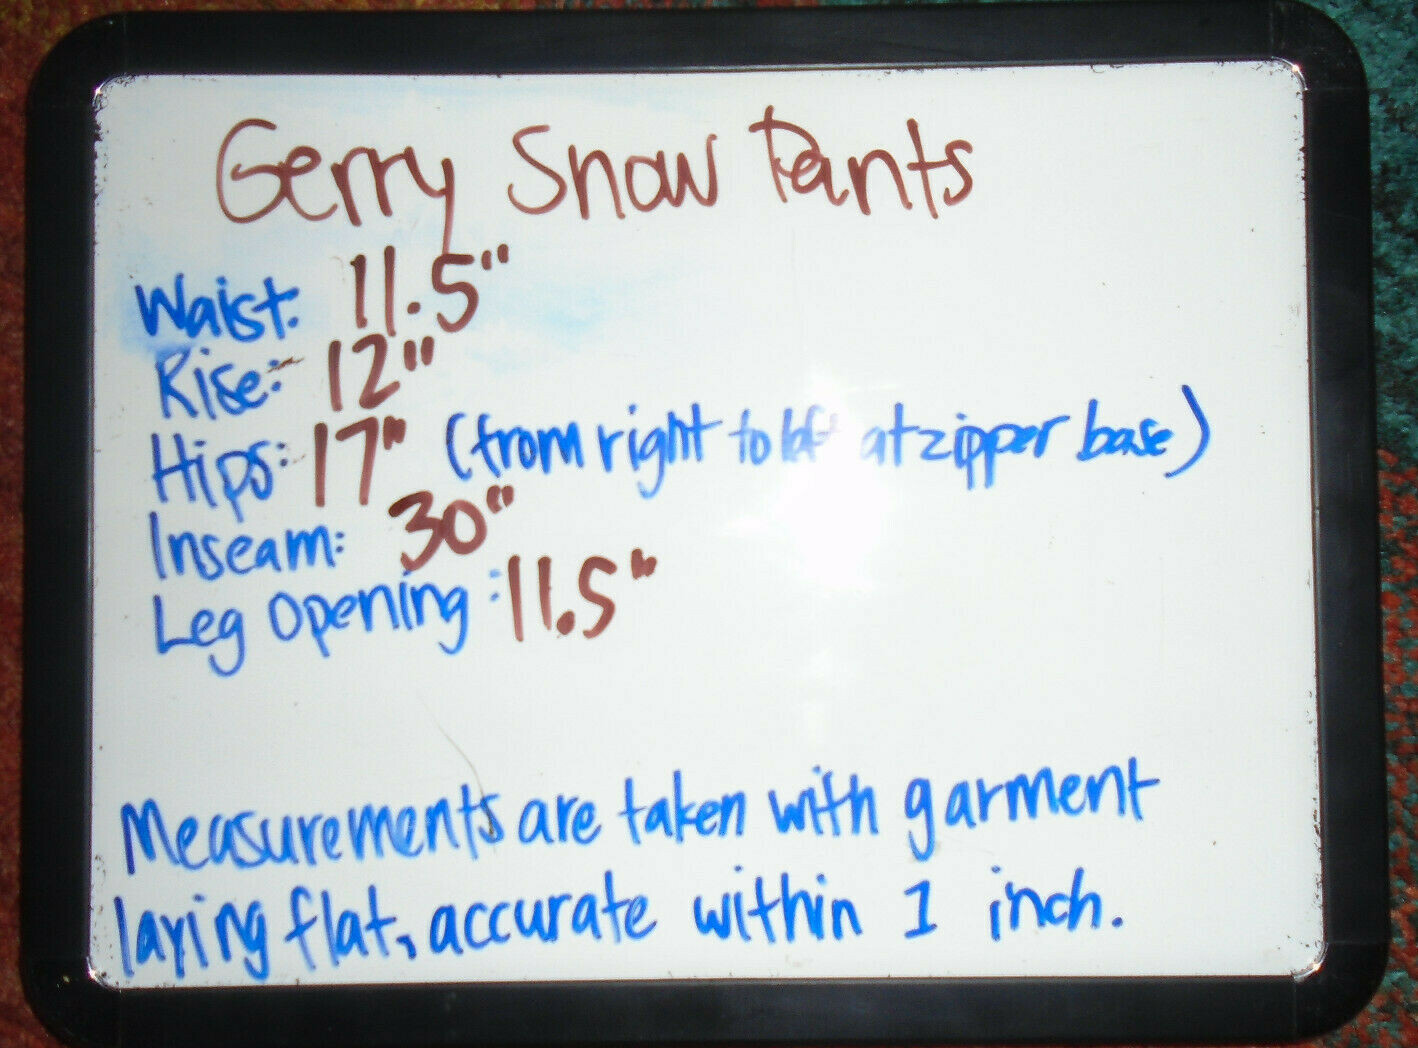 Gerry Snow Pants
Waist: 11.5"
Rise: 12"
Hips: 17" (from right to left at zipper base)
Inseam: 30"
Leg Opening: 11.5"
Measurements are taken with garment
laying flat, accurate within 1 inch.